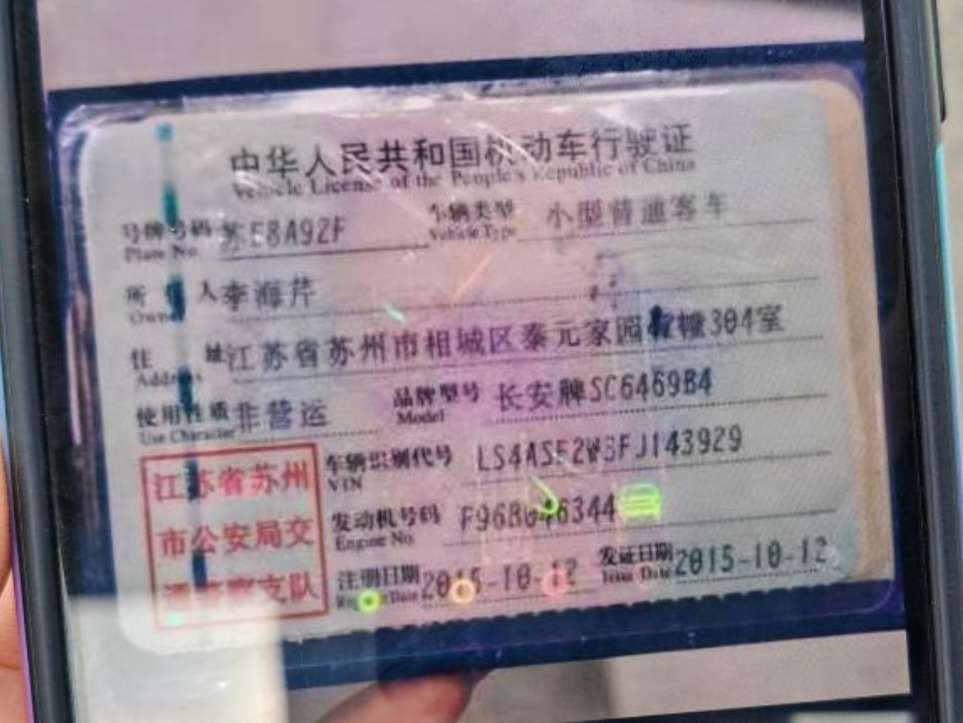 中华人民共和国机动车行驶证
Vehicle License of the People's Republic of China
号牌号码 苏E8A92F 车辆类型 小型普通客车
Plate No. Vehicle Type
所 人 李海芹
Owner
住 址 江苏省苏州市相城区泰元家园 幢304室
Address
使用性质 非营运 品牌型号 长安牌SC6469B4
Use Character Model
江苏省苏州 车辆识别代号 LS4ASE2W3FJ143929
VIN
市公安局交 发动机号码
Engine No.
通警察支队 注册日期 2015-10-12 发证日期 2015-10-12
Register Date Issue Date